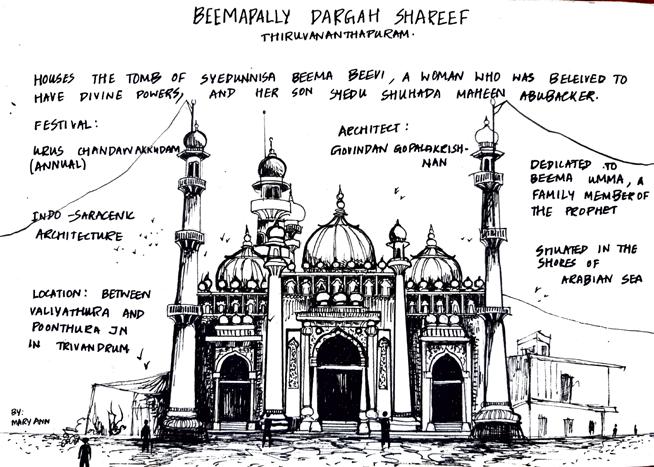 BEEMAPALLY DARGAH SHAREEF
THIRUVANANTHAPURAM.
HOUSES THE TOMB OF SYEDUNNISA BEEMA BEEVI, A WOMAN WHO WAS BELEIVED TO
HAVE DIVINE POWERS, AND HER SON SYEDU SHUHADA MAHEEN ABUBACKER.
FESTIVAL:
URUS CHANDANAKKUDAM
(ANNUAL)
INDO-SARACENIC
ARCHITECTURE
LOCATION: BETWEEN
VALIYATHURA AND
POONTHURA JN
IN TRIVANDRUM
BY:
MARY ANN
ARCHITECT:
GOVINDAN GOPALAKRISH-
NAN
DEDICATED TO
BEEMA UMMA, A
FAMILY MEMBER OF
THE PROPHET
SITUATED IN THE
SHORES OF
ARABIAN SEA